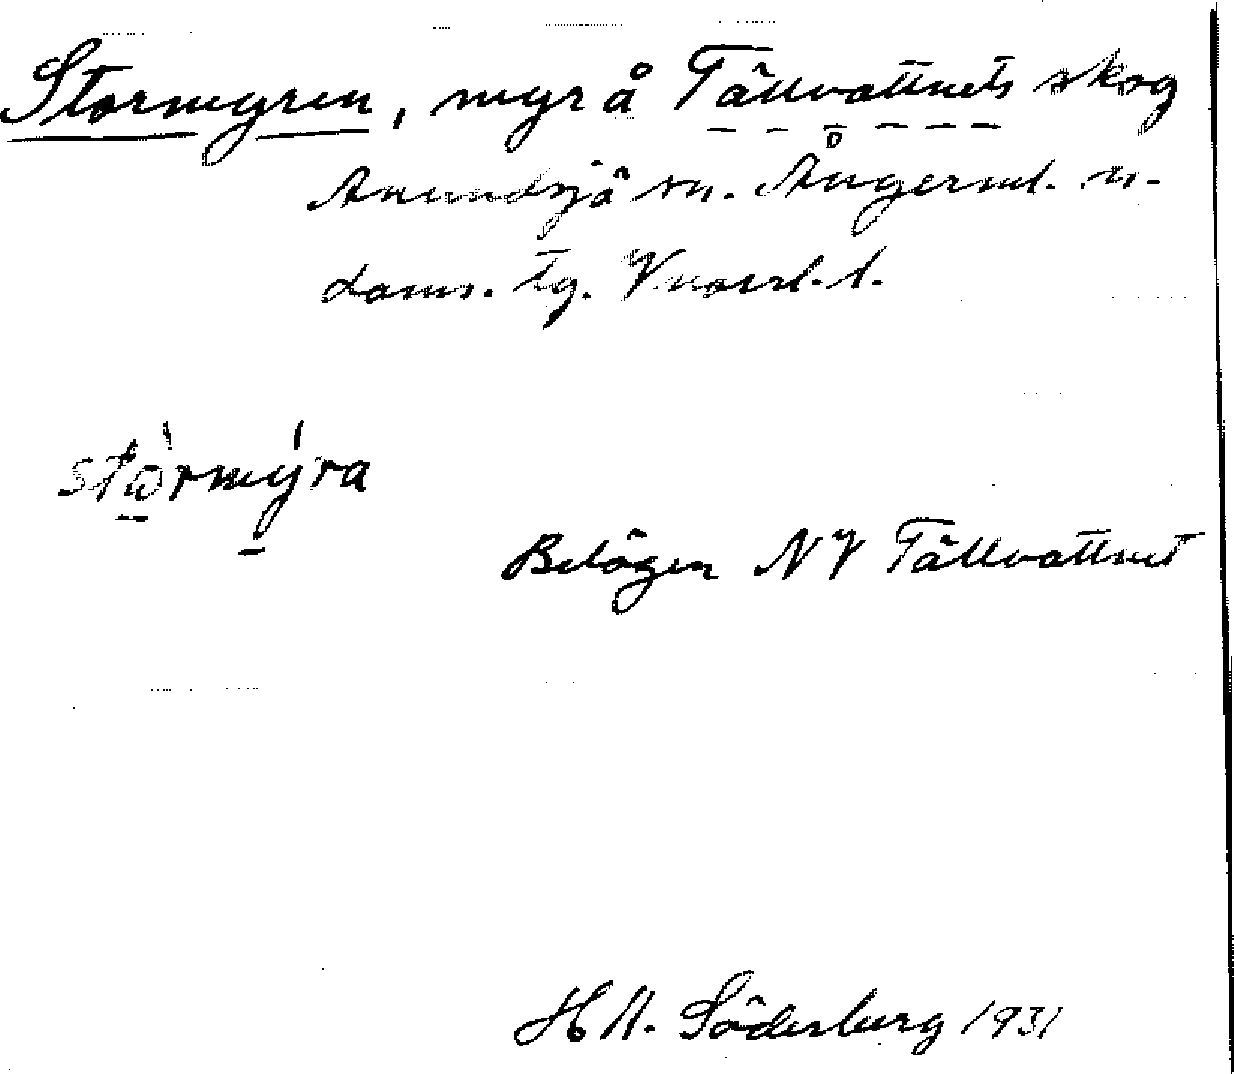 Stormyren, myr å Tällvattnets skog
Anundsjö sn. Ångerml. n.
doms. tg. Vnorrl. l.
stọ̀rmýra
Belägen NV Tällvattnet
H N. Söderberg 1931